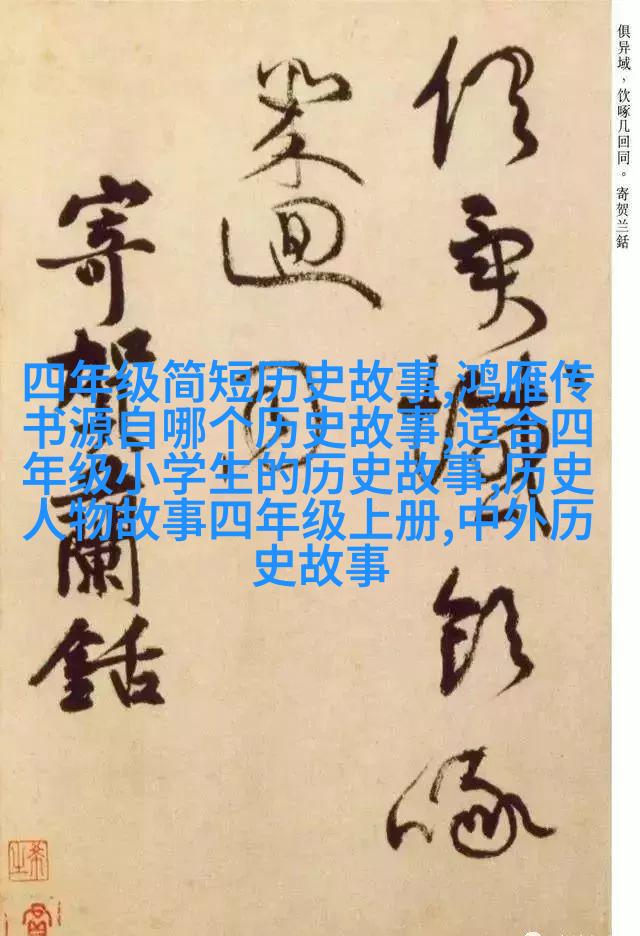 四年级简短历史故事,鸿雁传
书源自哪个历史故事,适合四
年级小学生的历史故事,历史
人物故事四年级上册,中外历
史故事
俱异域，饮啄几回同。寄贺兰銛
俱異域飲啄
幾迴同
寄賀蘭銛